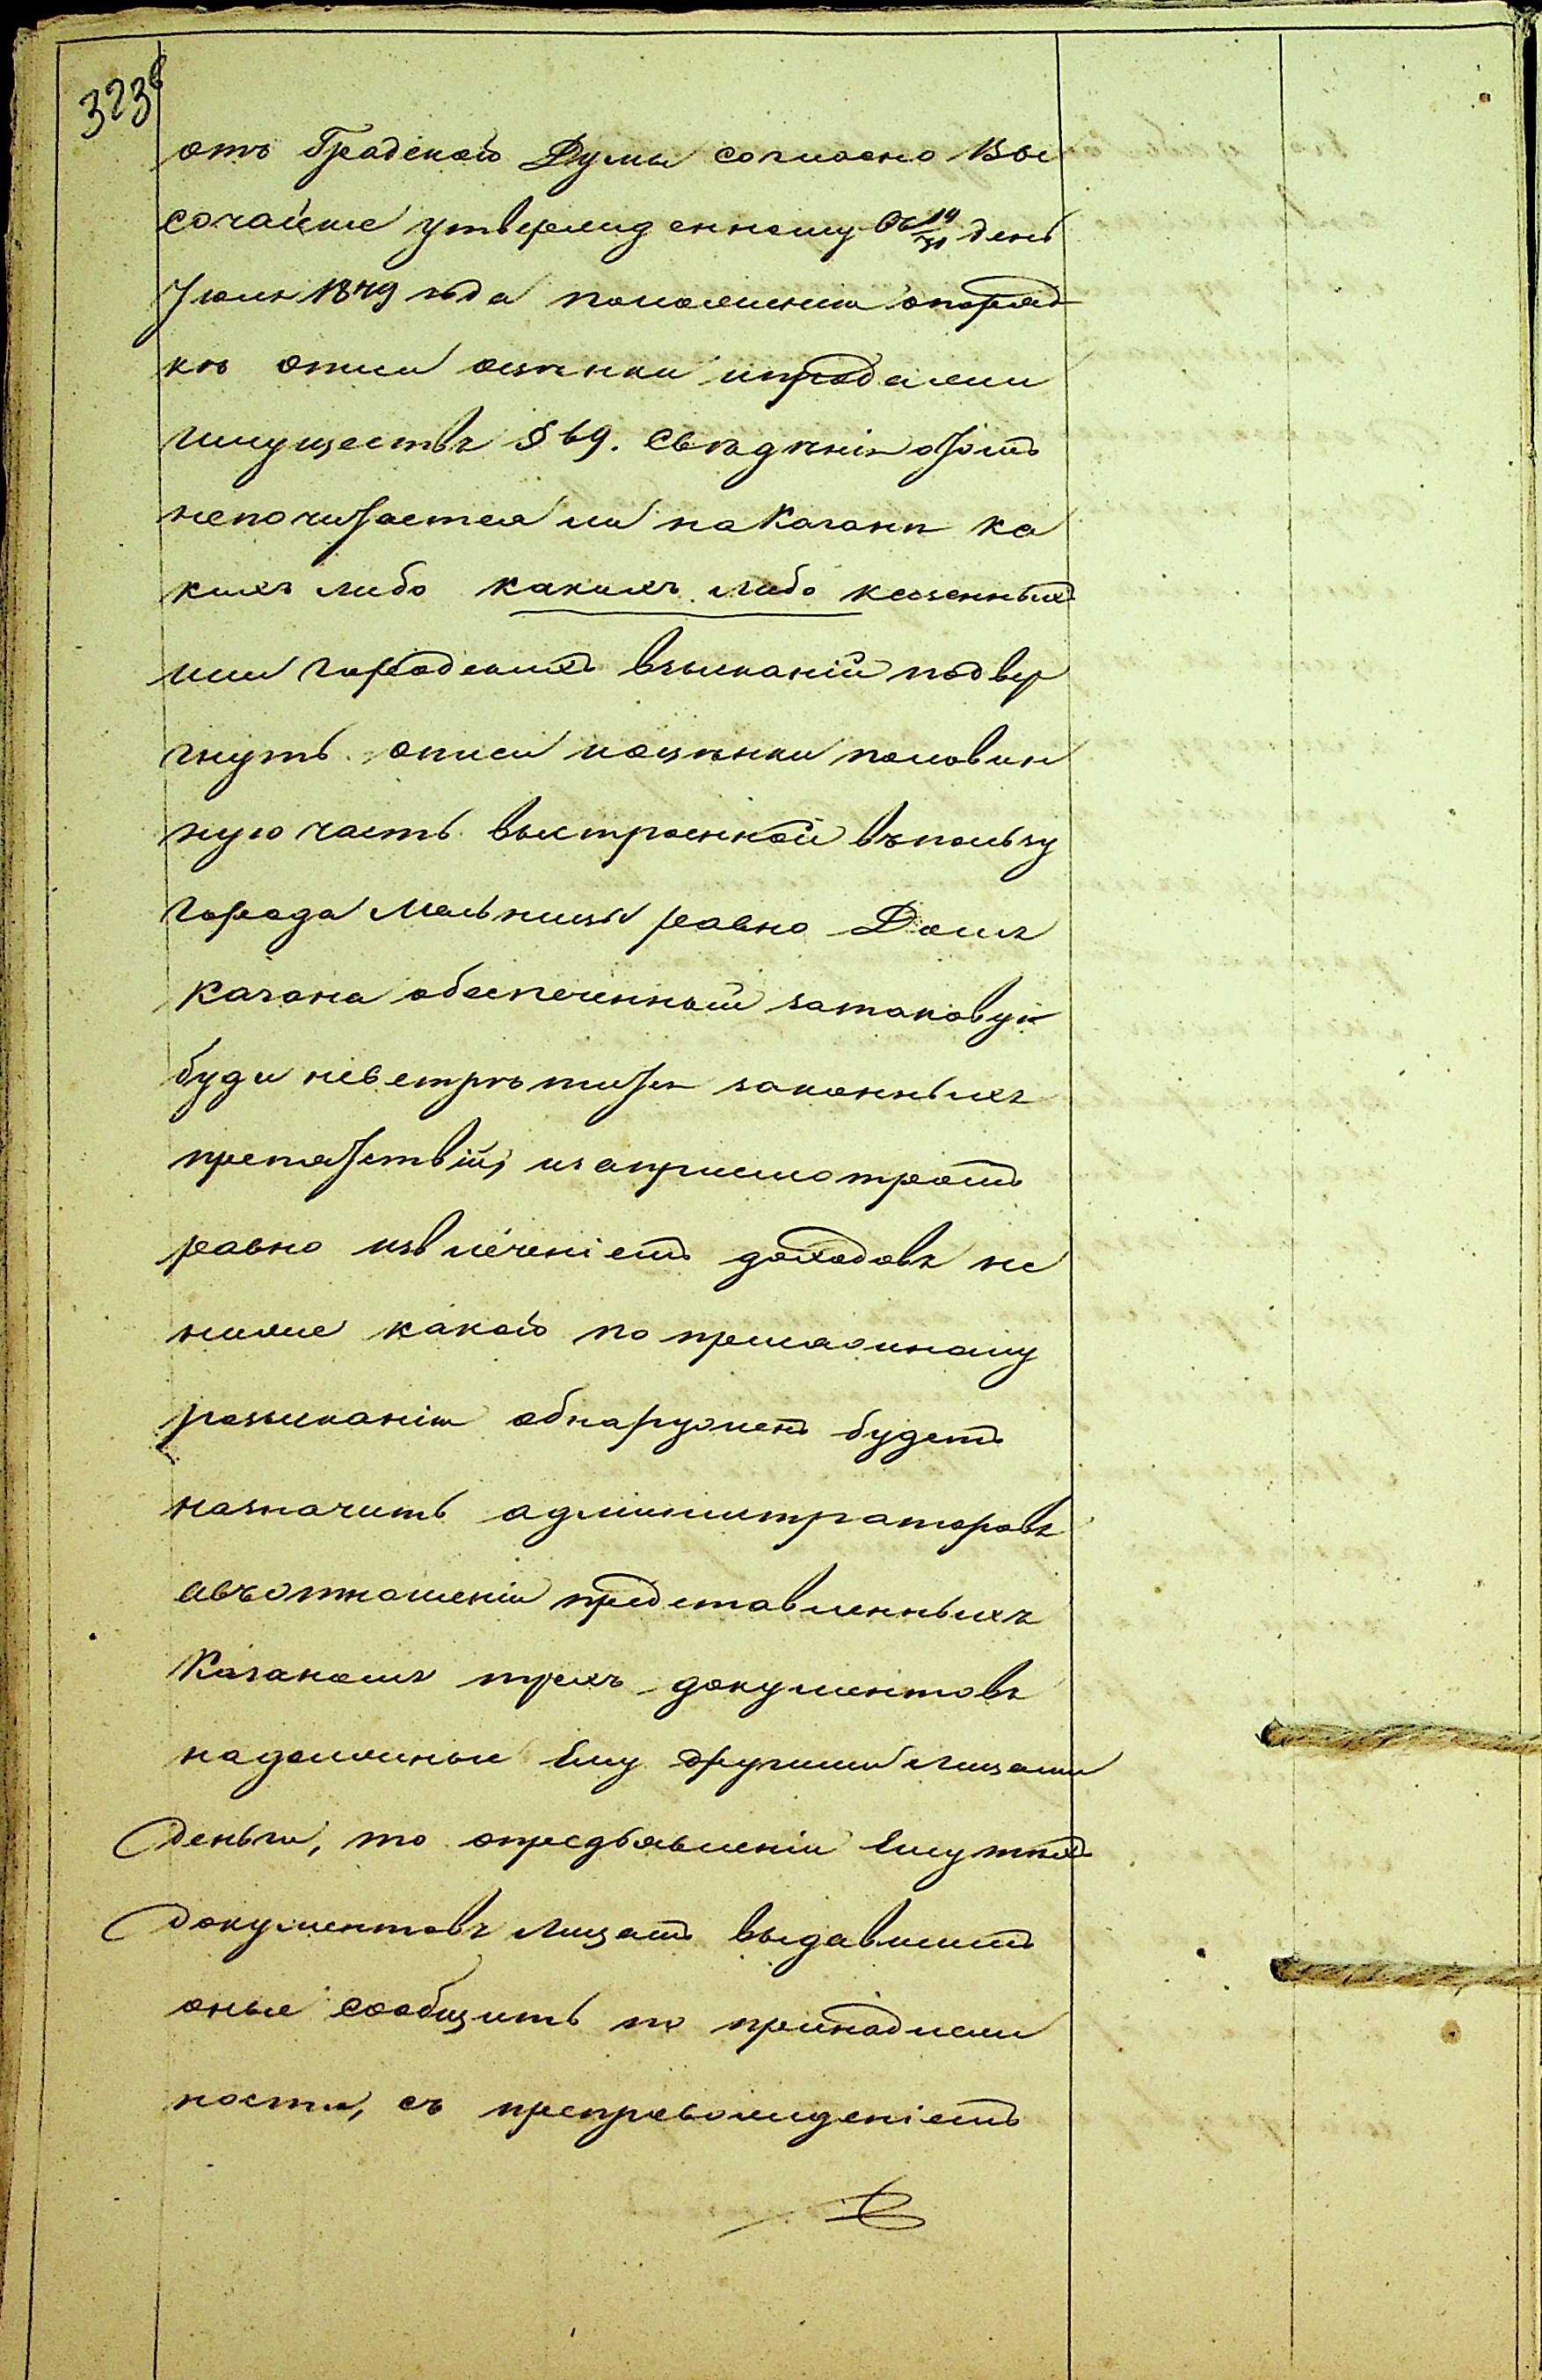 323б
отъ Градской Думы согласно Вы
сочайше утвержденному въ 19/31 день
Іюля 1849 года положенію о поряд
кѣ описи оцѣнки и продажи
имуществъ § 69. Свѣдѣнія о томъ
непочитается ли на Каганѣ ка
кихъ либо какихъ либо казенныхъ
или городскихъ взысканій подвер
гнуть описи и оцѣнки половин
ную часть выстроенной въ пользу
города Мельницы равно Домъ
Кагана обеспеченный за таковую
буде невстрѣтится законныхъ
препятствій, и за присмотромъ
равно извлеченіемъ доходовъ не
ниже какой по прилажному
розысканію обнаруженъ будетъ
назначить администраторовъ
а въ отношеніи представленныхъ
Каганомъ трехъ документовъ
на должныи Ему другими лицами
деньги, то о предъявленіи Ему тѣхъ
документовъ лицамъ выдавшимъ
оные сообщить по принадлеж
ности, съ препровожденіемъ